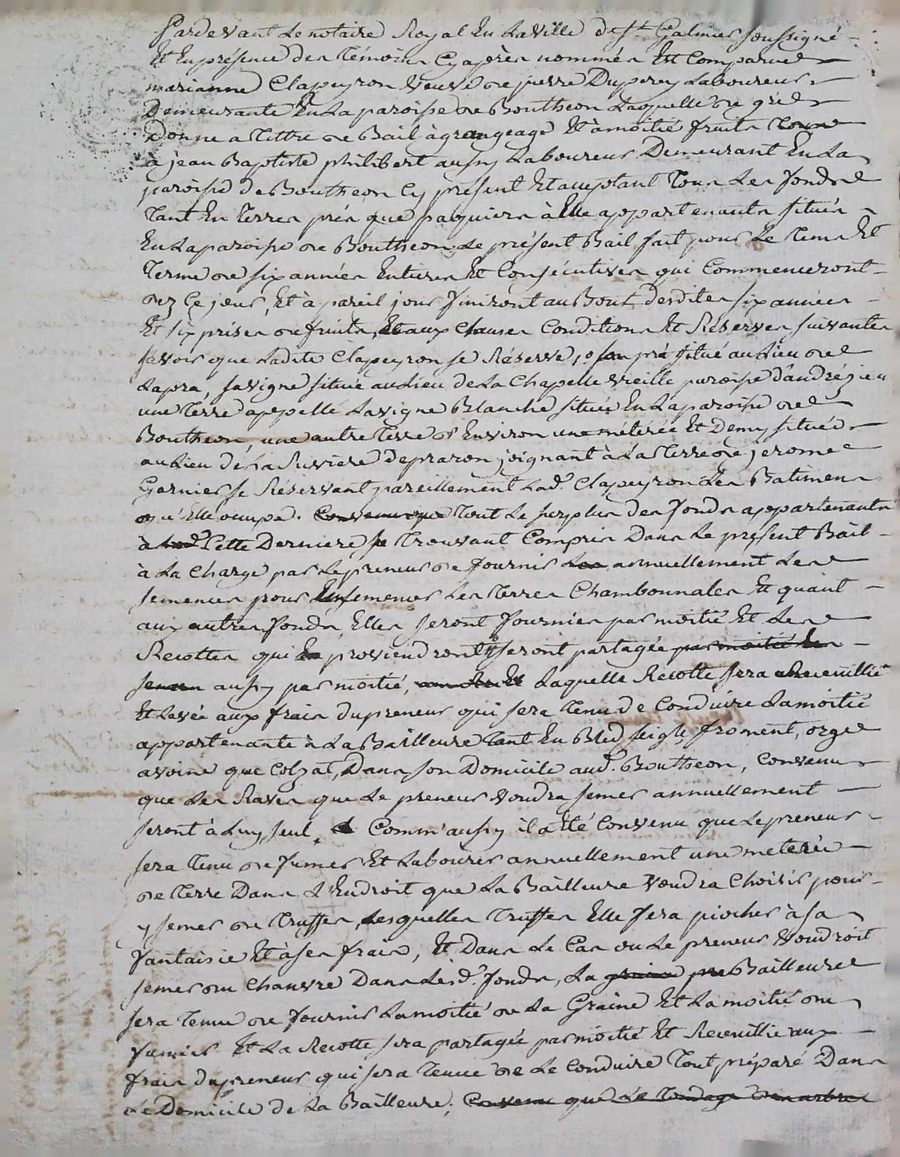 Pardevant Le notaire Royal En La ville de St Galmier soussigné
Et En présence des témoins Cy après nommés Est Comparue
marianne Clapeyron veuve de pierre Duperey Laboureur
Demeurante En La paroisse de Boutheon Laquelle de gré
Donne a tittre de Bail à grangeage Et à moitié fruits
à jean Baptiste philibert aussy Laboureur Demeurant En La
paroisse de Boutheon Cy présent Et acceptant Tous Les fonds
Tant En Terres prés que paquiers à Elle appartenants situés
En La paroisse de Boutheon Le présent Bail fait pour Le Tems Et
Terme de six années Entieres Et Consécutives qui Commenceront
dez Ce jour, Et à pareil jour finiront au Bout desdites six années
Et six prises de fruits, Et aux Clauses Conditions Et Réserves suivantes
savoir que Ladite Clapeyron se Réserve 1o son pré situé au Lieu de
Lapra, sa vigne située au Lieu de La Chapelle vieille paroisse d'andrézieu
une Terre appellé La vigne Blanche située En La paroisse de
Boutheon une autre Terre d'Environ une méterée Et Demy située
au Lieu de La Riviere de prazon joignant à La Terre de jerome
Garnier se Réservant pareillement Lad. Clapeyron Les Batimens
qu'Elle occupe. Tout Le surplus des fonds appartenants
à Cette Derniere se Trouvant Compris Dans Le présent Bail
à La Charge par Le preneur de fournir annuellement Les
semences pour Ensemencer Les Terres Chambonnales Et quant
aux autres fonds Elles seront fournies par moitié Et Les
Recoltes qui En proviendront seront partagée par moitié
aussy par moitié, Laquelle Recolte sera Receuillie
Et Levée aux frais du preneur qui sera Tenu de Conduire La moitié
appartenante à La Bailleure Tant En Bled seigle, froment, orge
avoine que Colzat, Dans son Domicile aud. Boutheon, Convenu
que Les Raves que Le preneur voudra semer annuellement
seront à Luy seul, Comm'aussy il a Eté Convenu que Le preneur
sera Tenu de fumer Et Labourer annuellement une meterée
de Terre Dans L'Endroit que La Bailleure voudra Choisir pour
y semer de Truffes, Lesquelles Truffes Elle fera piocher à sa
fantaisie Et à ses frais, Et Dans Le Cas ou Le preneur voudroit
semer du Chanvre Dans Lesd. fonds, La Bailleure
sera Tenue de fournir La moitié de La Graine Et La moitié du
fumier Et La Recolte sera partagée par moitié Et Receuillie aux
frais du preneur qui sera Tenue de Le Conduire Tout préparé Dans
Le Domicile de La Bailleure; Convenu que Le Tondage des arbres